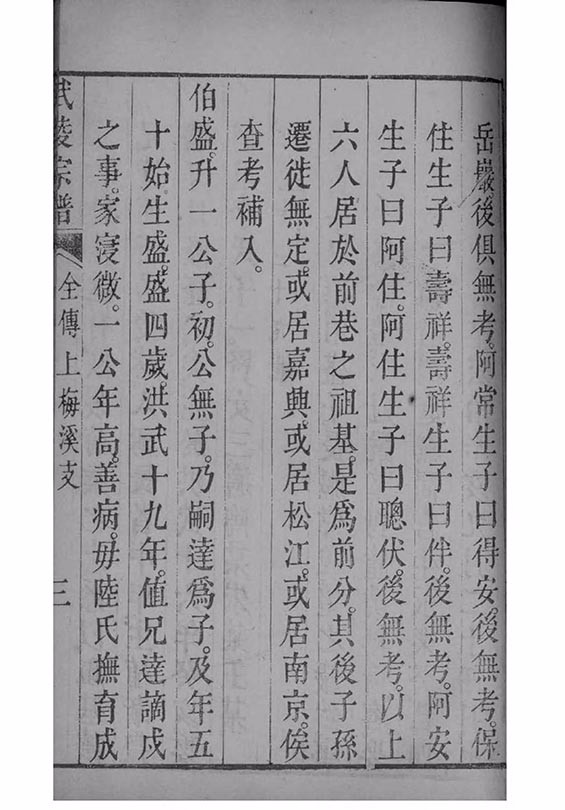 岳巖後俱無考。阿常生子曰得安。後無考。保
住生子曰壽祥。壽祥生子曰伴。後無考。阿安
生子曰阿住。阿住生子曰聰伏。後無考。以上
六人居於前巷之祖基。是爲前分。其後子孫
遷徙無定。或居嘉興。或居松江。或居南京。俟
查考補入。
伯盛。升一公子。初。公無子。乃嗣達爲子。及年五
十始生盛。盛四歲。洪武十九年。值兄達謫戍
之事。家寖微。一公年高。善病。毋陸氏撫育成
武陵宗譜 全傳上梅溪支 三